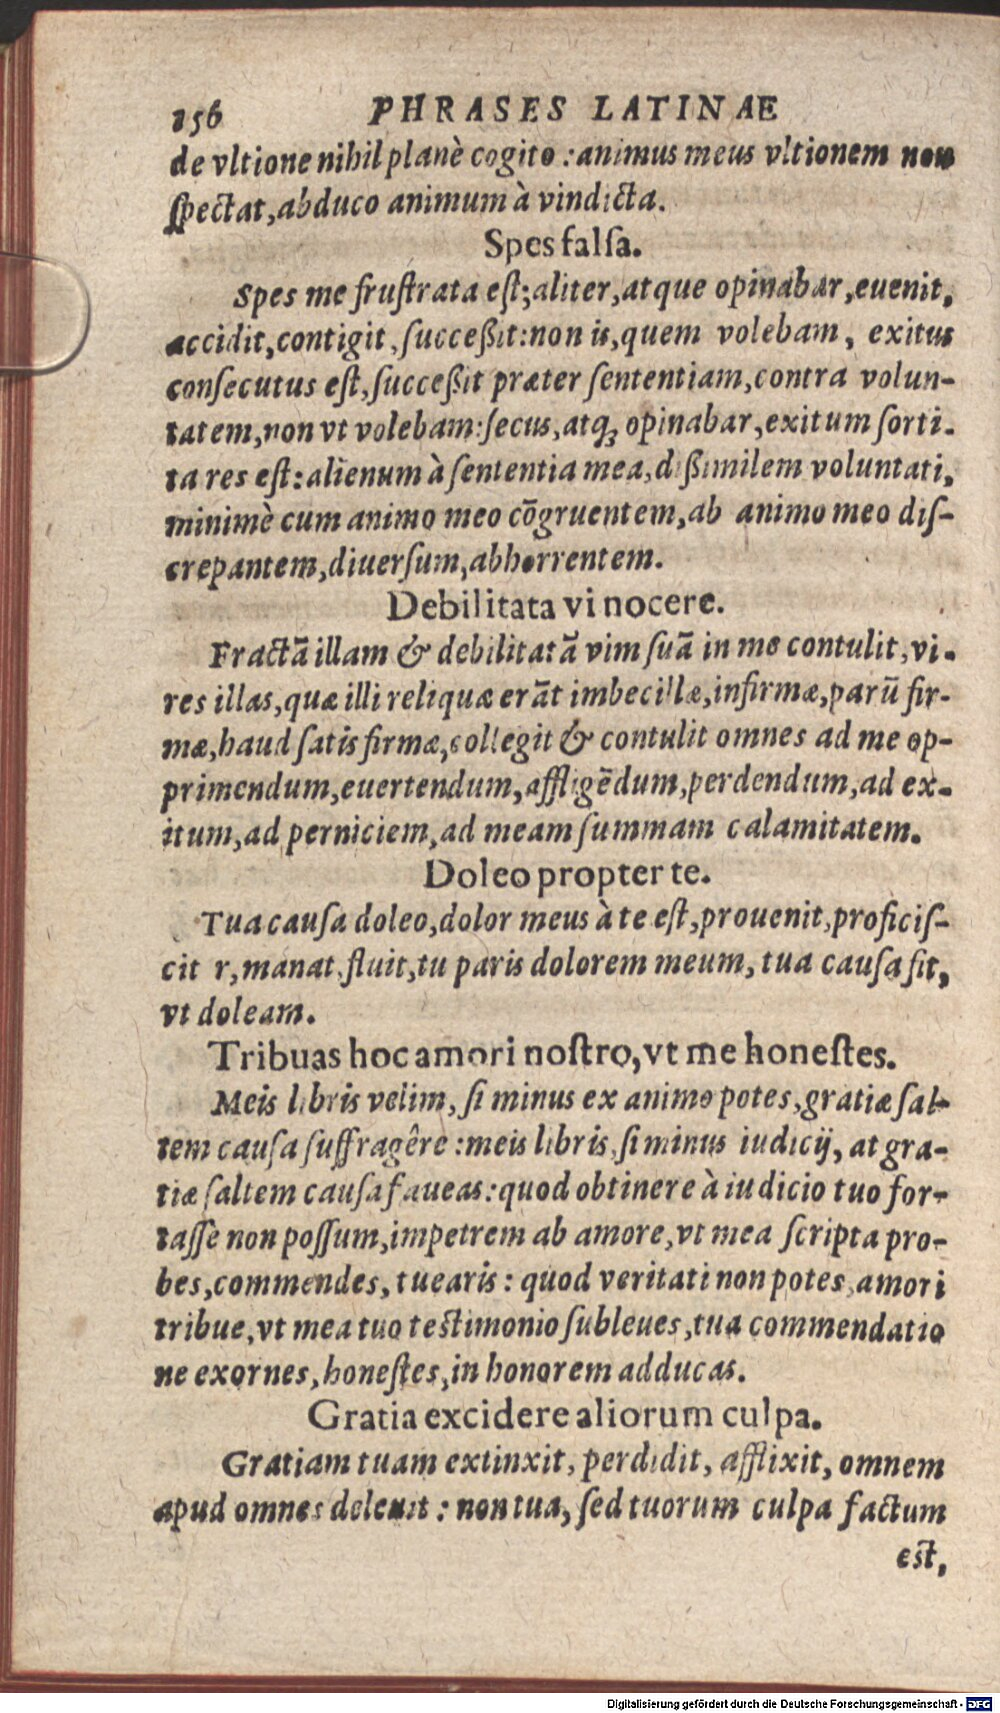 156 PHRASES LATINAE
de vltione nihil planè cogito : animus meus vltionem non
ſpectat, abduco animum à vindicta.
Spes falſa.
Spes me fruſtrata eſt; aliter, atque opinabar, euenit,
accidit, contigit, ſucceßit: non is, quem volebam, exitus
conſecutus eſt, ſucceßit præter ſententiam, contra volun-
tatem, non vt volebam: ſecus, atq; opinabar, exitum ſorti-
ta res eſt: alienum à ſententia mea, dißimilem voluntati,
minimè cum animo meo cõgruentem, ab animo meo diſ-
crepantem, diuerſum, abhorrentem.
Debilitata vi nocere.
Fractã illam & debilitatã vim ſuã in me contulit, vi-
res illas, quæ illi reliquæ erãt imbecillæ, infirmæ, parũ fir-
mæ, haud ſatis firmæ, collegit & contulit omnes ad me op-
primendum, euertendum, affligẽdum, perdendum, ad ex-
itum, ad perniciem, ad meam ſummam calamitatem.
Doleo propter te.
Tua cauſa doleo, dolor meus à te eſt, prouenit, proficiſ-
cit r, manat, fluit, tu paris dolorem meum, tua cauſa fit,
vt doleam.
Tribuas hoc amori noſtro, vt me honeſtes.
Meis libris velim, ſi minus ex animo potes, gratiæ ſal-
tem cauſa ſuffragêre : meis libris, ſi minus iudicij, at gra-
tiæ ſaltem cauſa faueas: quod obtinere à iudicio tuo for-
taſſe non poſſum, impetrem ab amore, vt mea ſcripta pro-
bes, commendes, tuearis : quod veritati non potes, amori
tribue, vt mea tuo teſtimonio ſubleues, tua commendatio
ne exornes, honeſtes, in honorem adducas.
Gratia excidere aliorum culpa.
Gratiam tuam extinxit, perdidit, afflixit, omnem
apud omnes deleuit : non tua, ſed tuorum culpa factum
eſt,
Digitalisierung gefördert durch die Deutsche Forschungsgemeinschaft - DFG